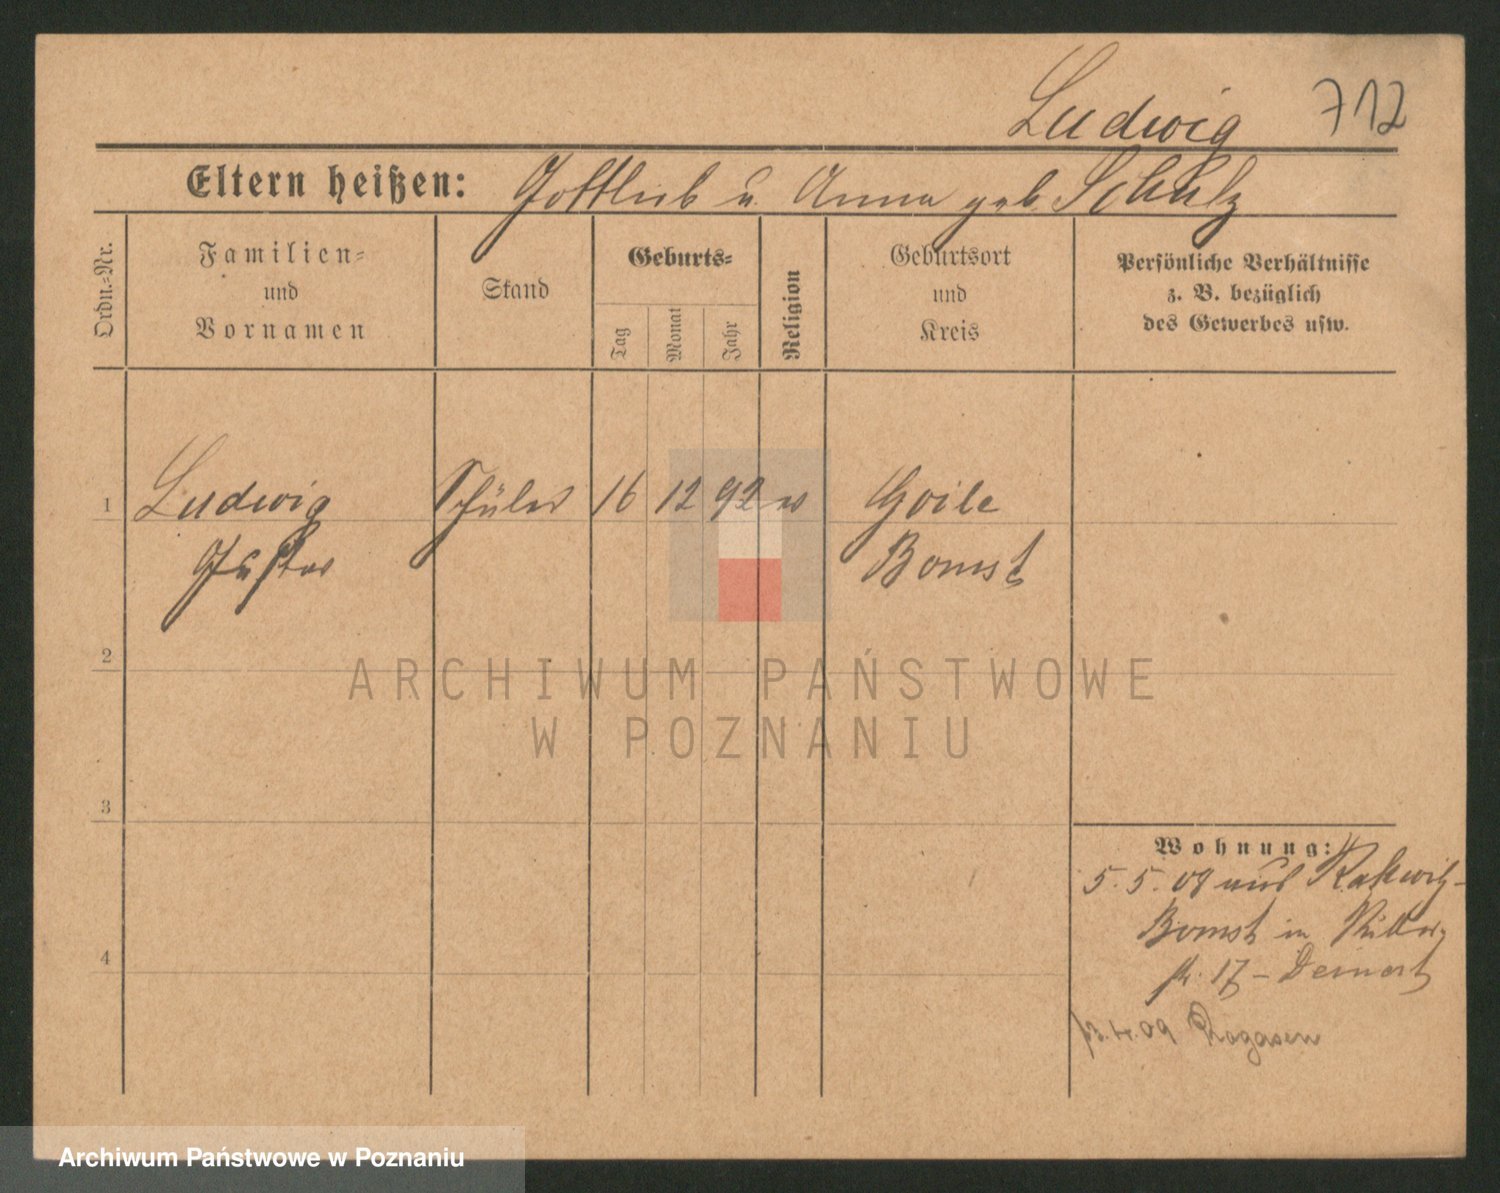 Ludwig 712
Eltern heißen: Gottlieb u. Anna geb. Schulz
Ordn.-Nr.
Familien-
und
Vornamen
Stand
Geburts-
Tag
Monat
Jahr
Religion
Geburtsort
und
Kreis
Persönliche Verhältnisse
z. B. bezüglich
des Gewerbes usw.
1 Ludwig Schüler 16 12 92 Goile
Gustav Bomst
2
ARCHIWUM PAŃSTWOWE
W POZNANIU
3
Wohnung:
5. 5. 08 aus Rakwitz-
Bomst in Ritter-
str. 17 -
4
4. 09 Rogasen
Archiwum Państwowe w Poznaniu